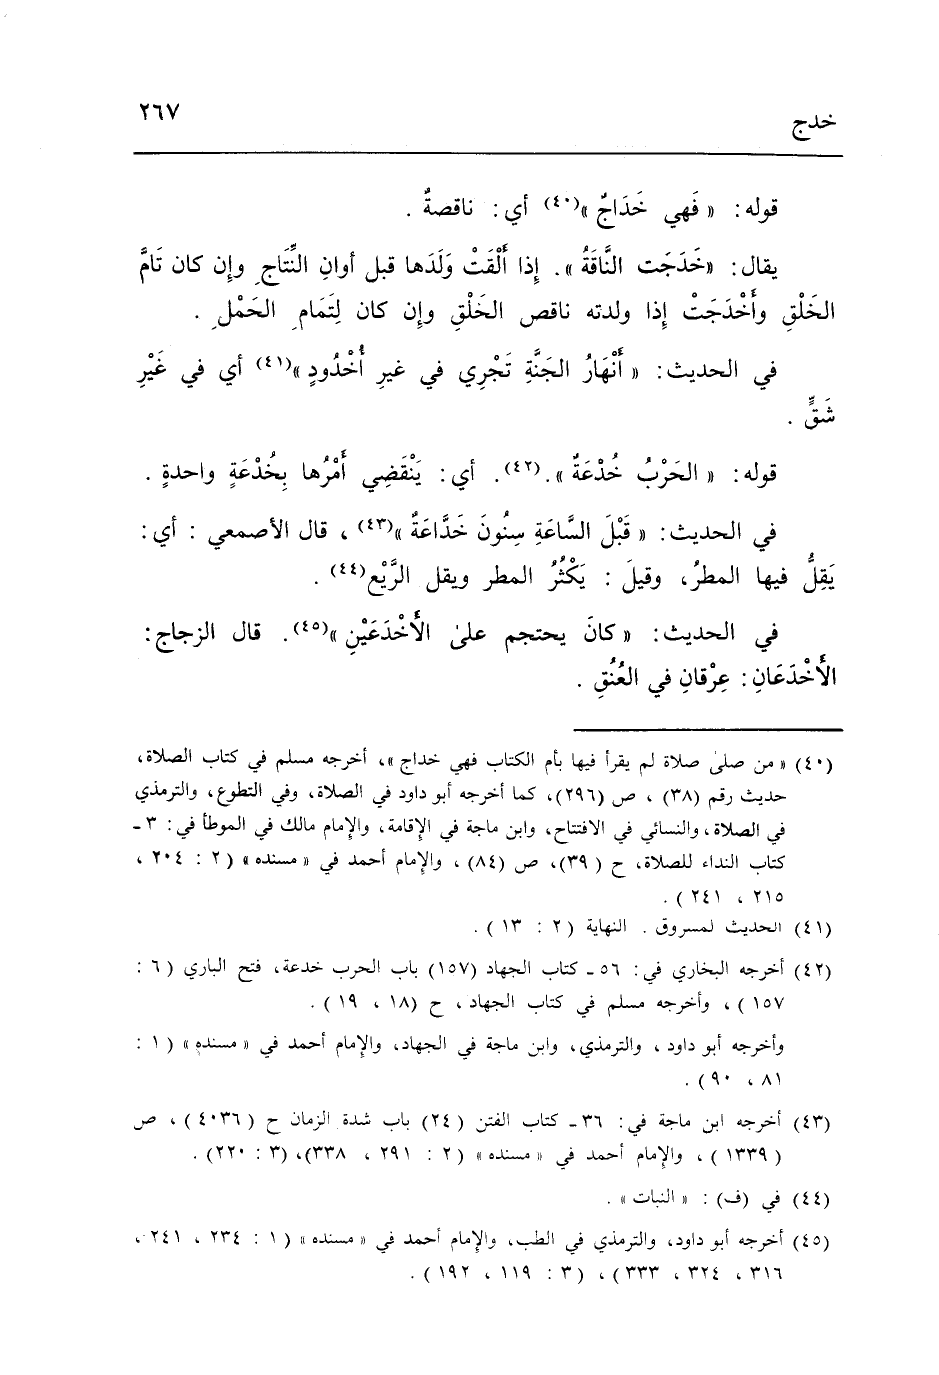 خدج
٢٦٧
قوله: « فَهي خَدَاجٌ »(٤٠) أي: ناقصةٌ .
يقال: «خَدَجَت النَّاقَةُ ». إِذا أَلْقَتْ وَلَدَها قبل أوانِ النِّتَاجِ وإِن كان تَامَّ
الخَلْقِ وأَخْدَجَتْ إِذا ولدته ناقص الخَلْقِ وإِن كان لِتَمَامِ الحَمْلِ .
في الحديث: « أَنْهَارُ الجَنَّةِ تَجْرِي في غيرِ أُخْدُودٍ »(٤١) أي في غَيْرِ
شَقٍّ .
قوله: « الحَرْبُ خُدْعَةٌ ».(٤٢). أي: يَنْقَضِي أَمْرُها بِخُدْعَةٍ واحدةٍ .
في الحديث: « قَبْلَ السَّاعَةِ سِنُونَ خَدَّاعَةٌ »(٤٣) ، قال الأصمعي : أي:
يَقِلُّ فيها المطرُ، وقيلَ : يَكْثُرُ المطر ويقل الرَّيْع(٤٤) .
في الحديث: « كانَ يحتجم علىٰ الأَخْدَعَيْنِ »(٤٥). قال الزجاج:
الأَخْدَعَانِ: عِرْقانِ في العُنُقِ .
(٤٠) « من صلىٰ صلاة لم يقرأ فيها بأم الكتاب فهي خداج »، أخرجه مسلم في كتاب الصلاة،
حديث رقم (٣٨) ، ص (٢٩٦)، كما أخرجه أبو داود في الصلاة، وفي التطوع، والترمذي
في الصلاة، والنسائي في الافتتاح، وابن ماجة في الإقامة، والإمام مالك في الموطأ في: ٣ ـ
كتاب النداء للصلاة، ح ( ٣٩)، ص (٨٤) ، والإمام أحمد في « مسنده » ( ٢ : ٢٠٤ ،
٢١٥ ، ٢٤١ ) .
(٤١) الحديث لمسروق . النهاية ( ٢ : ١٣ ) .
(٤٢) أخرجه البخاري في: ٥٦ ـ كتاب الجهاد (١٥٧) باب الحرب خدعة، فتح الباري ( ٦ :
١٥٧ ) ، وأخرجه مسلم في كتاب الجهاد ، ح (١٨ ، ١٩ ) .
وأخرجه أبو داود ، والترمذي، وابن ماجة في الجهاد، والإمام أحمد في « مسنده » ( ١ :
٨١ ، ٩٠ ) .
(٤٣) أخرجه ابن ماجة في: ٣٦ ـ كتاب الفتن ( ٢٤) باب شدة الزمان ح ( ٤٠٣٦ ) ، ص
( ١٣٣٩ ) ، والإمام أحمد في « مسنده » ( ٢ : ٢٩١ ، ٣٣٨)، (٣ : ٢٢٠) .
(٤٤) في (ف) : « النبات » .
(٤٥) أخرجه أبو داود، والترمذي في الطب، والإمام أحمد في « مسنده » ( ١ : ٢٣٤ ، ٢٤١ ،
٣١٦ ، ٣٢٤ ، ٣٣٣ ) ، ( ٣ : ١١٩ ، ١٩٢ ) .